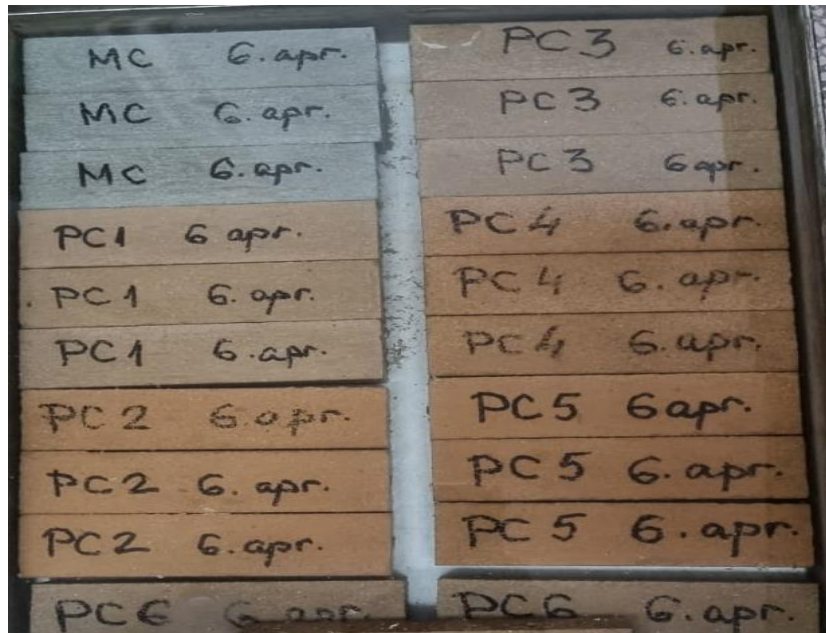 MC 6. apr.
MC 6. apr.
MC 6. apr.
PC1 6 apr.
PC1 6. apr.
PC1 6. apr.
PC2 6. apr.
PC2 6. apr.
PC2 6. apr.
PC6 6 apr.
PC3 6. apr.
PC3 6. apr.
PC3 6 apr.
PC4 6. apr.
PC4 6. apr.
PC4 6. apr.
PC5 6 apr.
PC5 6. apr.
PC5 6. apr.
PC6 6. apr.